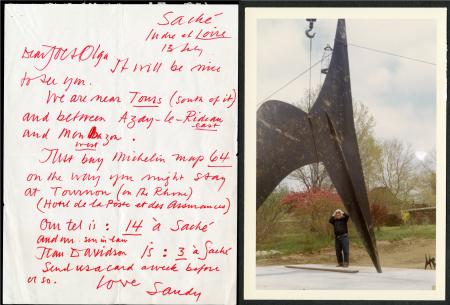 Saché
Indre et Loire
13 July
Dear Joe & Olga
It will be nice
to see you.
We are near Tours (south of it)
and between Azay-le-Rideau
east
and Monbazon.
west
Just buy Michelin map 64
on the way you might stay
at Tournon (on the Rhone)
(Hotel de la Poste et des Assurances)
Our tel is : 14 à Saché
and mr. son in law
Jean Davidson is : 3 à Saché
Send us a card a week before
or so.
Love
Sandy